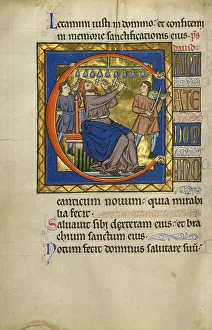 Letamini iusti in domino: et confitem
ini memorie sanctificationis eius. ps
dauid
C
ANT
ATE
DOM
INO
canticum nouum: quia mirabi
lia fecit
Saluauit sibi dexteram eius: et bra
chium sanctum eius.
Notum fecit dominus salutare